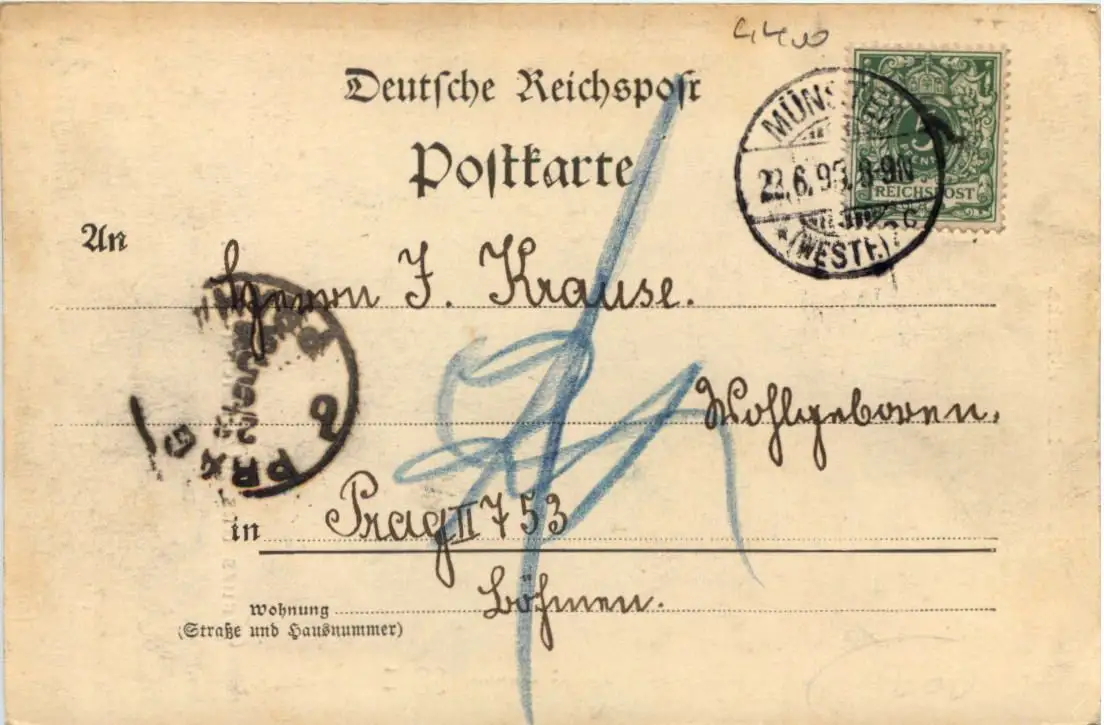 Deutsche Reichspost
Postkarte
MÜNSTER
22.6.98. 8-9N
*(WESTF.)
5
PFENNIG
REICHSPOST
An
Herrn J. Krause.
Wohlgeboren.
PRAG
in Prag II 753
Böhmen.
Wohnung
(Straße und Hausnummer)